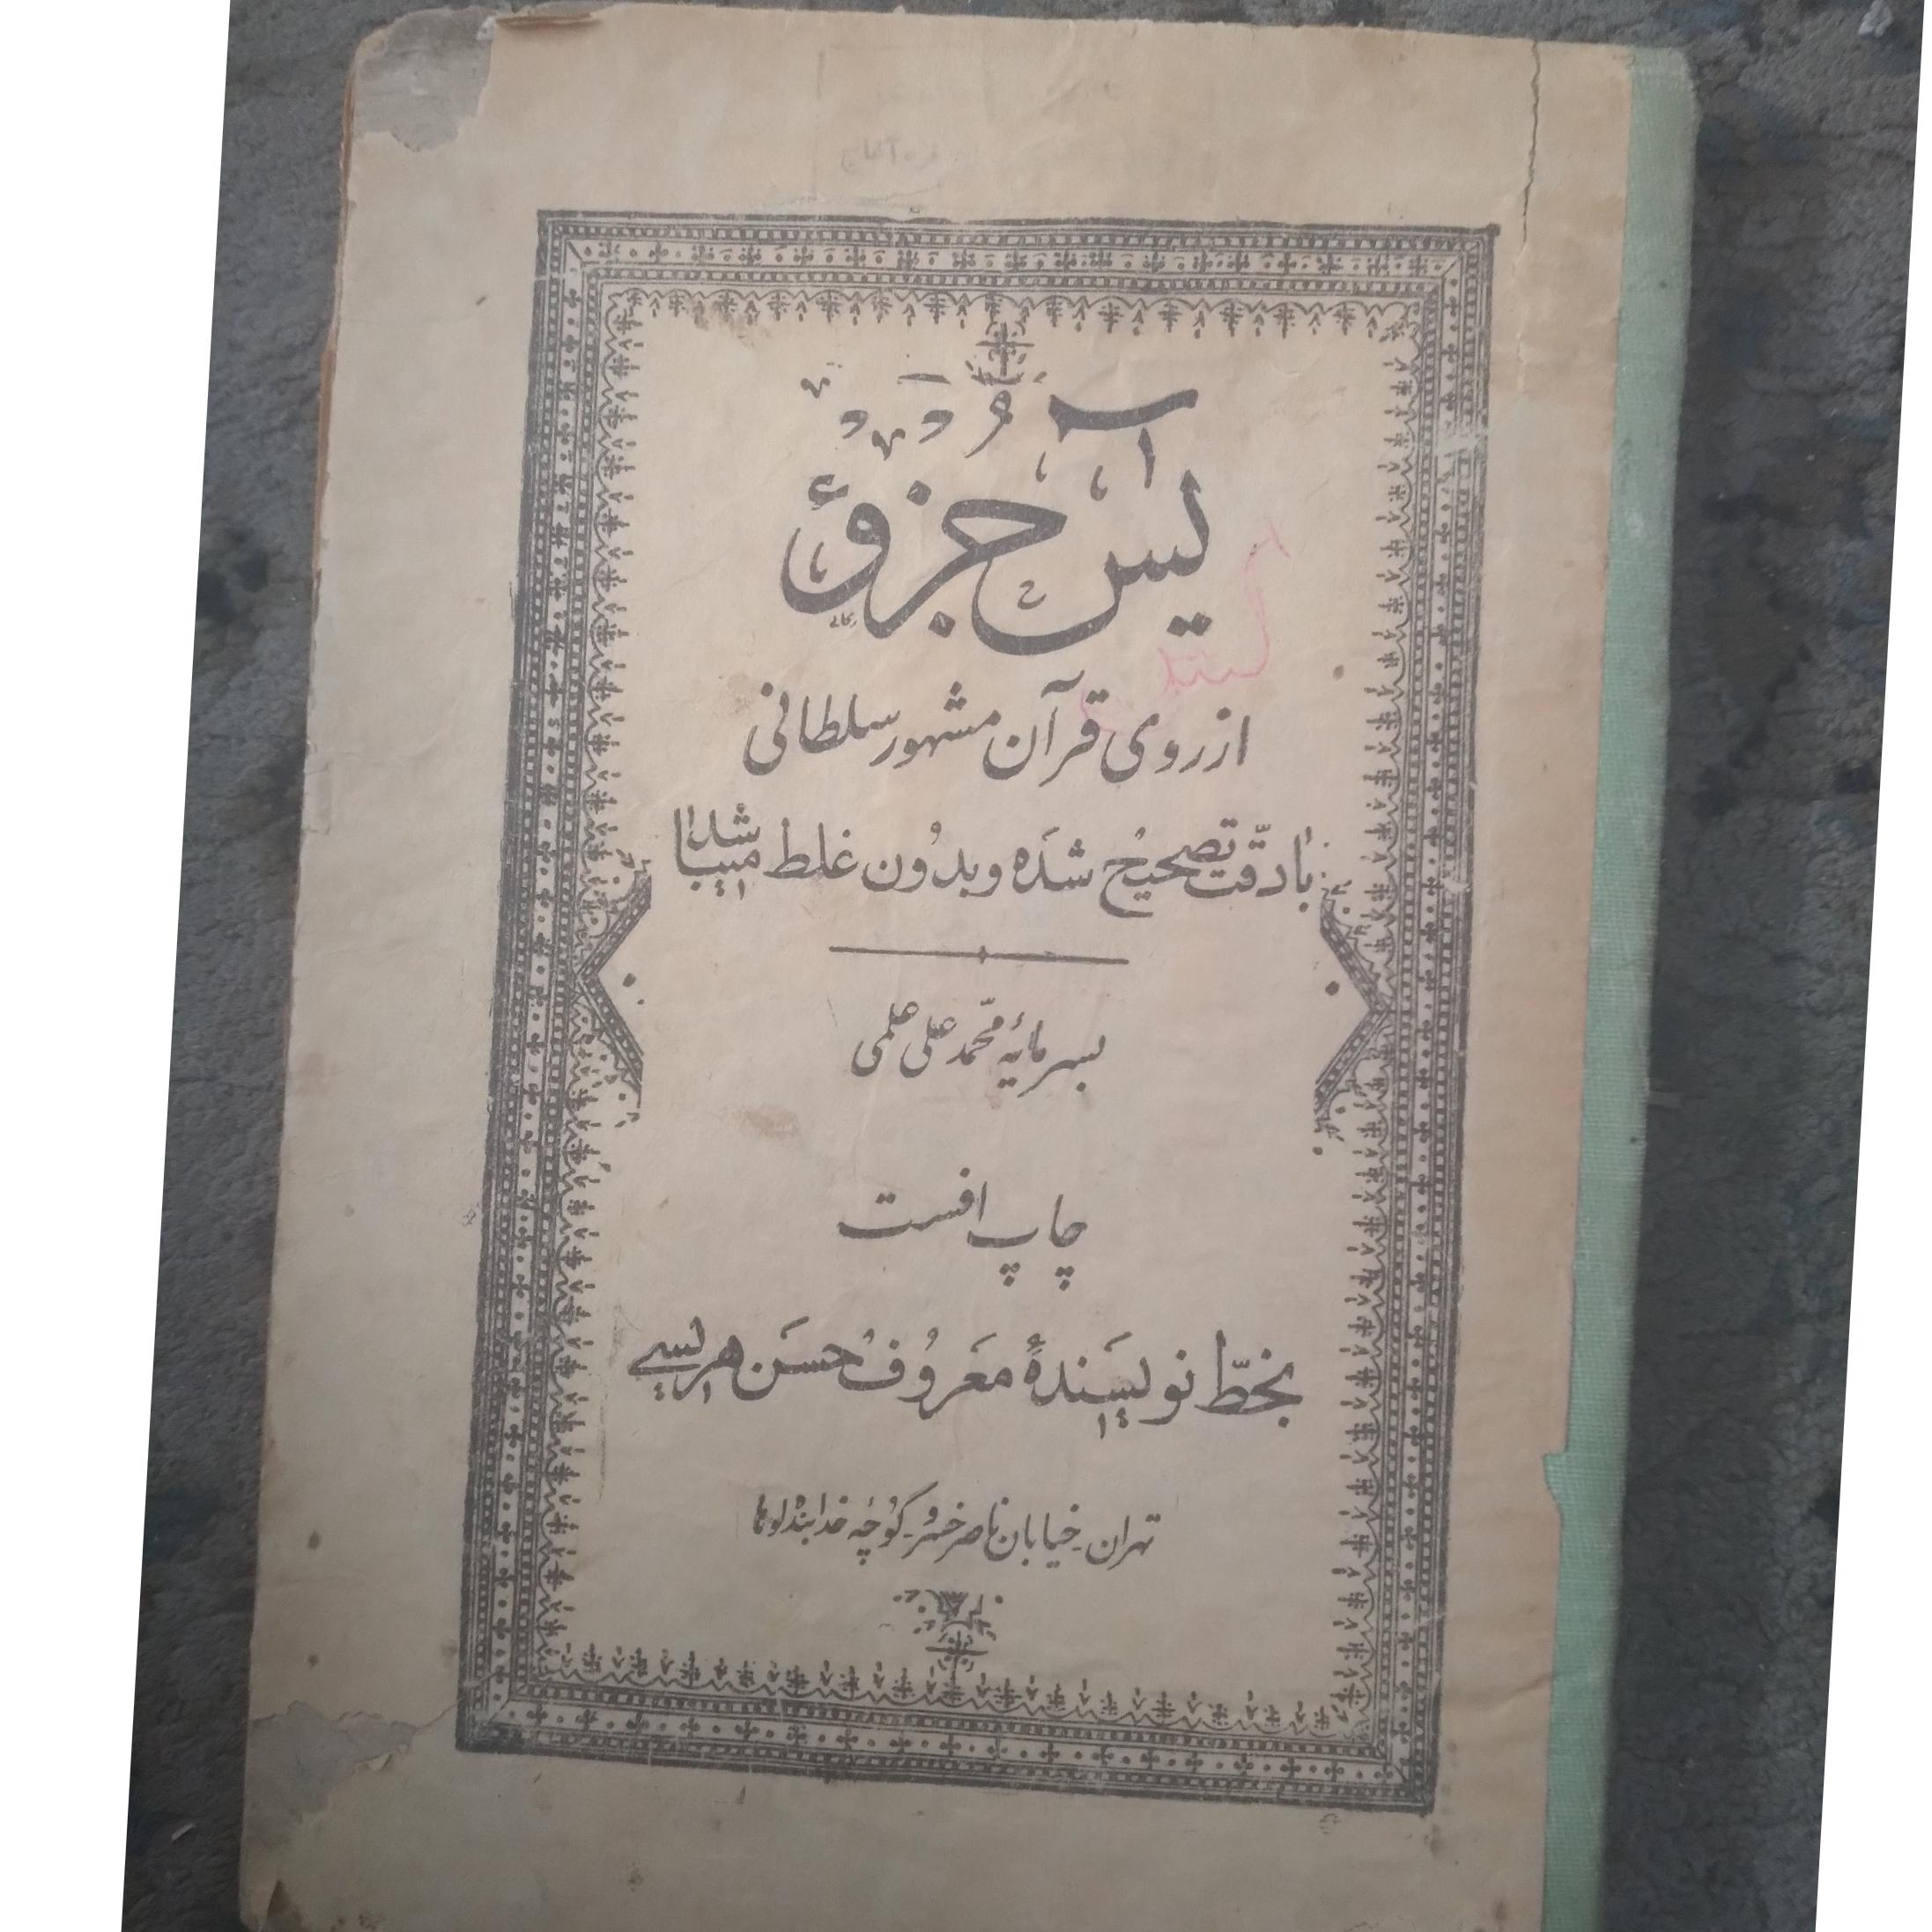 یٰسۤ جزؤ
از روی قرآن مشهور سلطانی
بادقّت تصحیح شده و بدون غلط میباشد
بسرمایهٔ محمّد علی علمی
چاپ افست
بخطّ نویسندهٔ معروف حسن هریسی
تهران - خیابان ناصرخسرو - کوچه خدابندلوها